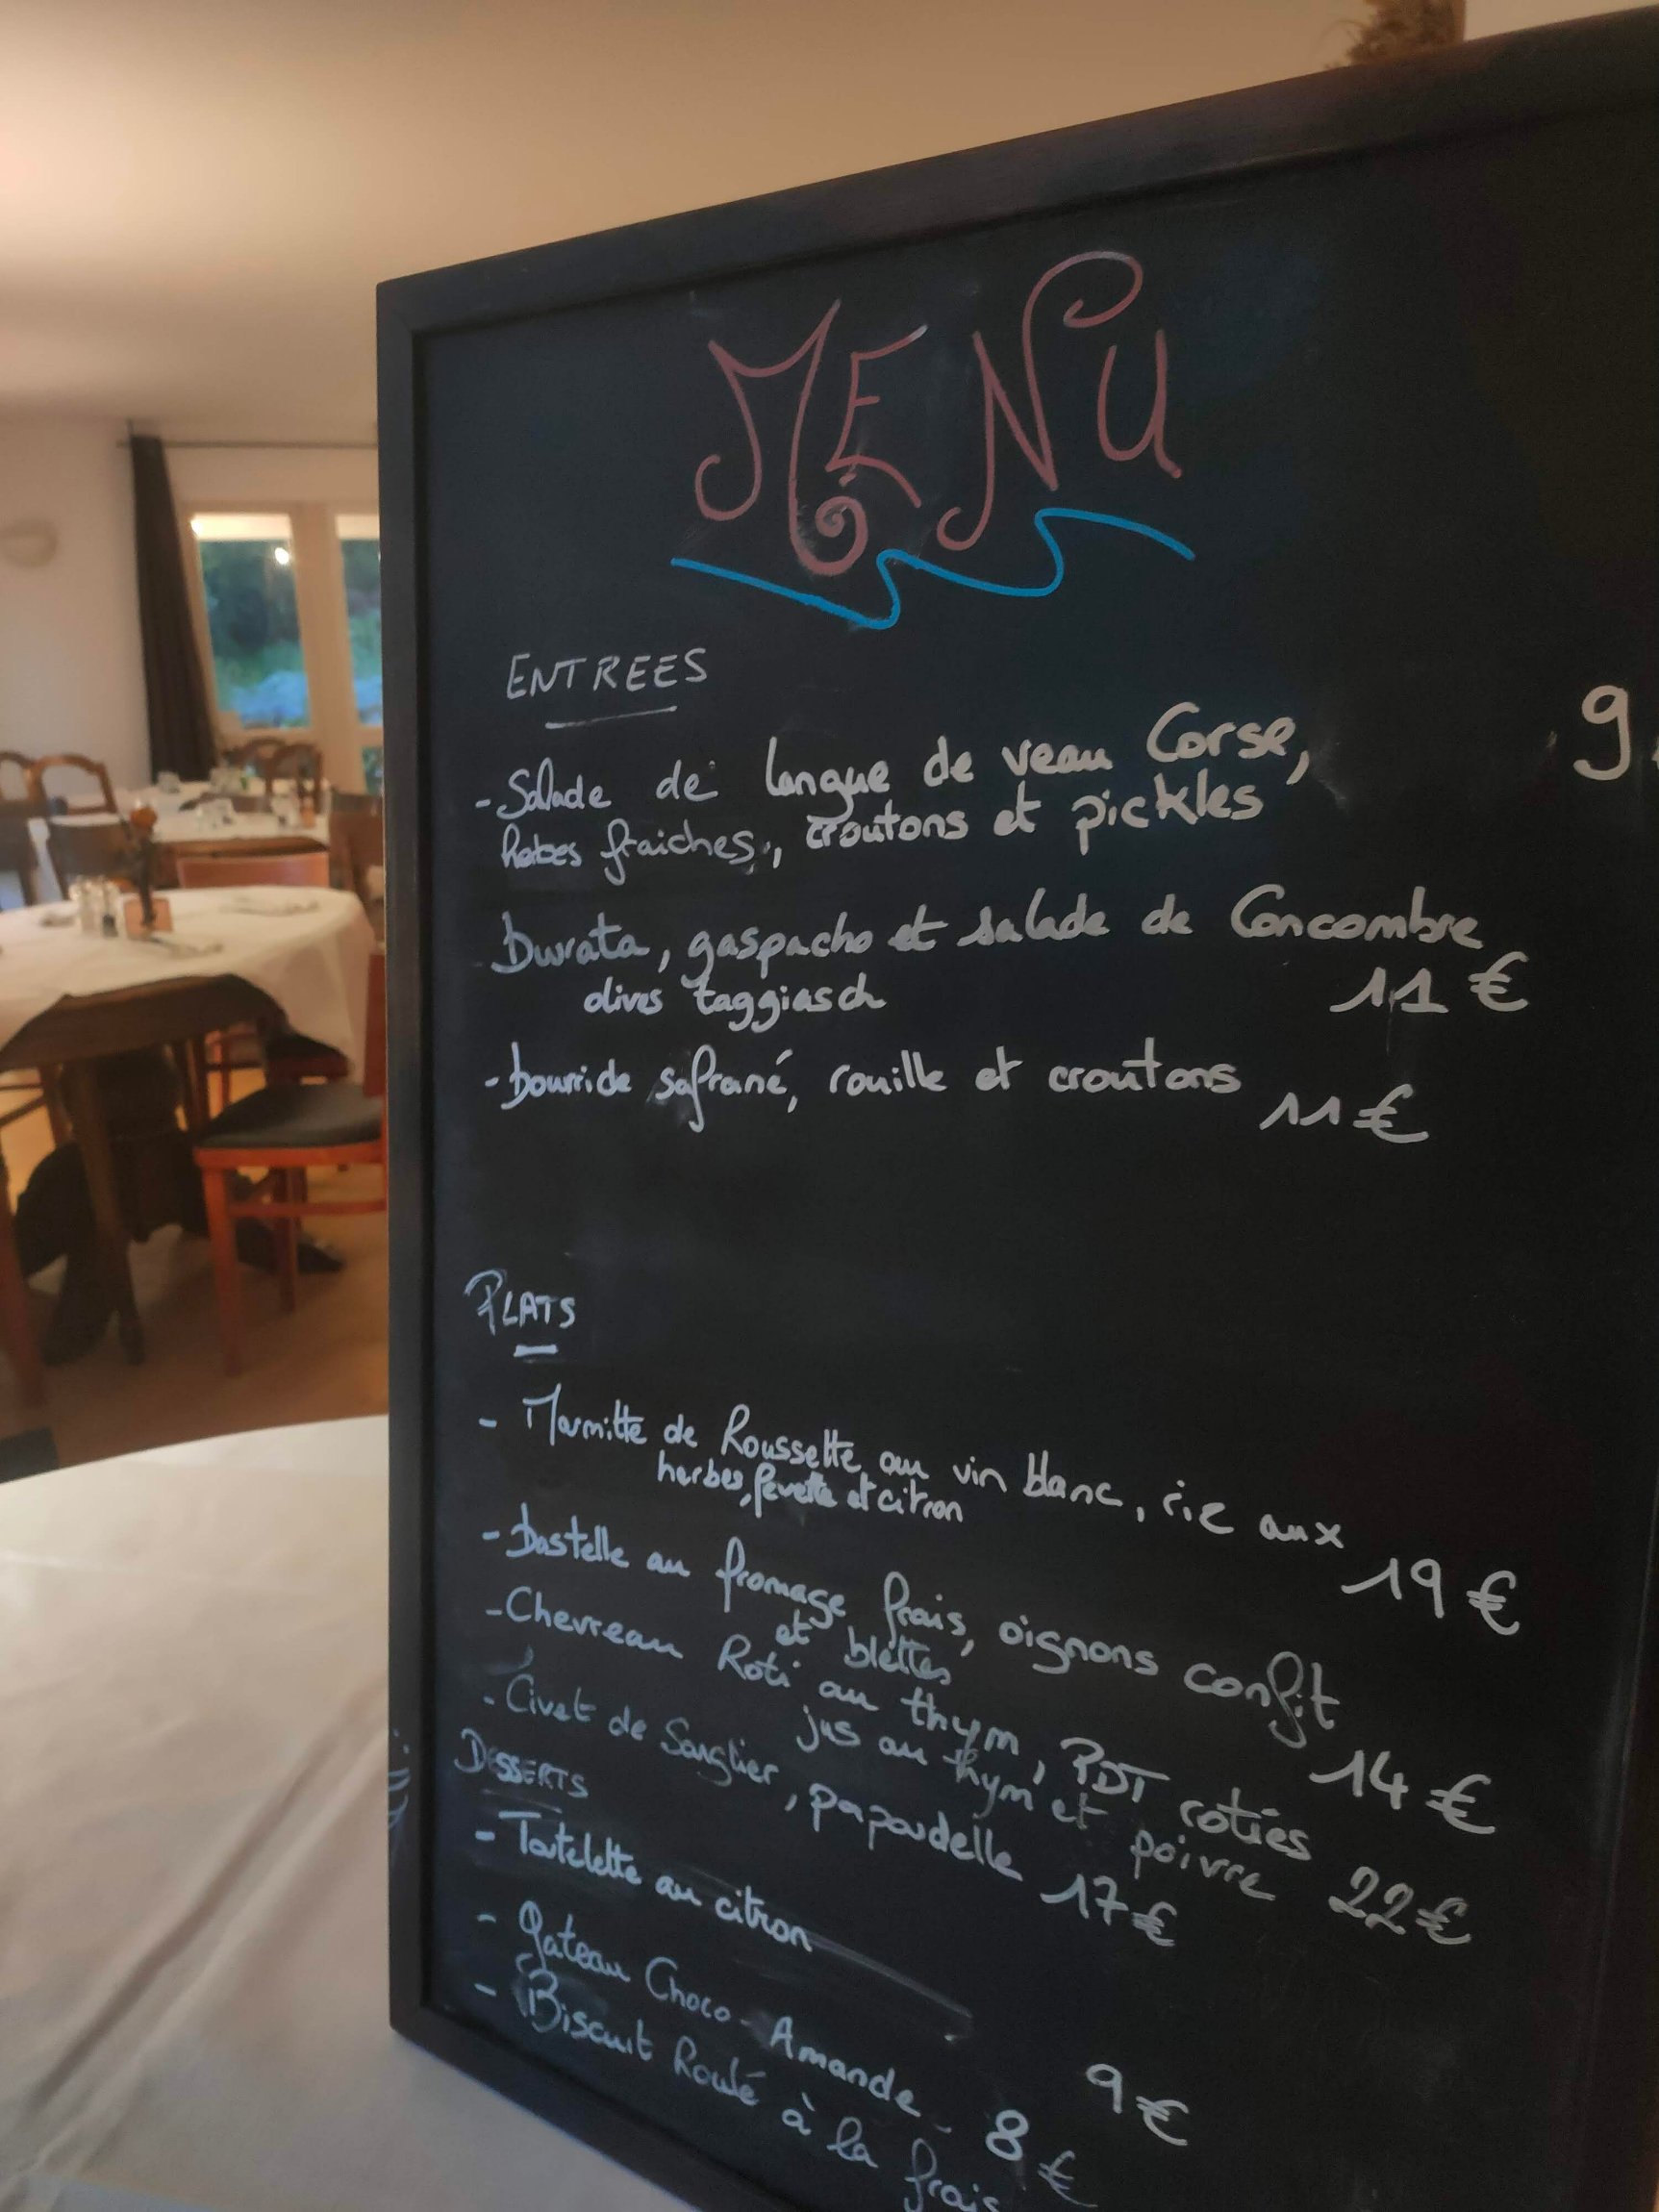 MENU
ENTREES
- Salade de langue de veau Corse, 9
herbes fraiches, croutons et pickles
Burata, gaspacho et salade de Concombre
olives taggiasch 11 €
- bourride safrané, rouille et croutons
11 €
PLATS
- Marmitte de Roussette au vin blanc, riz aux
herbes, fevette et citron 19 €
- Bastelle au fromage frais, oignons confit
et blettes 14 €
- Chevreau Roti au thym, PDT roties
jus au thym et poivre 22 €
- Civet de Sanglier, papardelle 17 €
DESSERTS
- Tartelette au citron 9 €
- Gateau Choco-Amande - 8 €
- Biscuit Roulé à la frais